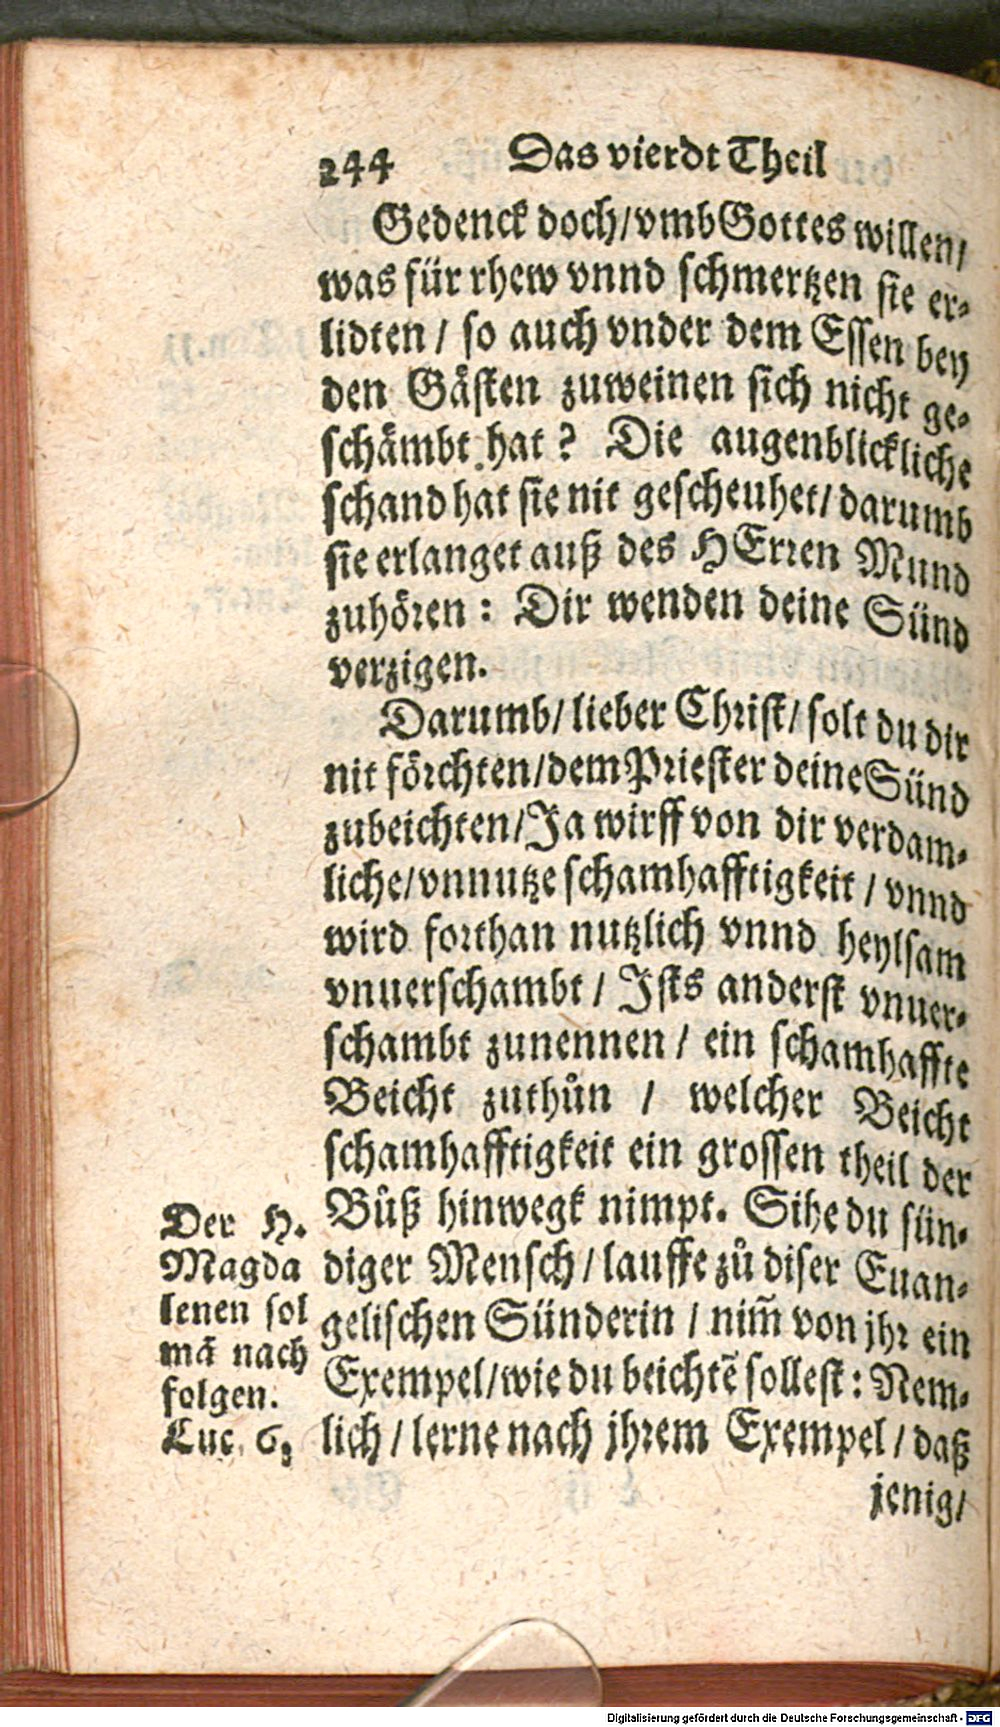 244 Das vierdt Theil
Gedenck doch/vmb Gottes willen/
was für rhew vnnd schmertzen sie er-
lidten / so auch vnder dem Essen bey
den Gästen zuweinen sich nicht ge-
schämbt hat? Die augenblickliche
schand hat sie nit gescheuhet/darumb
sie erlanget auß des HErren Mund
zuhören: Dir wenden deine Sünd
verzigen.
Darumb/lieber Christ/solt du dir
nit förchten/dem Priester deine Sünd
zubeichten/Ja wirff von dir verdam-
liche/vnnutze schamhafftigkeit / vnnd
wird forthan nutzlich vnnd heylsam
vnuerschambt / Ists anderst vnuer-
schambt zunennen / ein schamhaffte
Beicht zuthůn / welcher Beicht
schamhafftigkeit ein grossen theil der
Bůß hinwegk nimpt. Sihe du sün-
diger Mensch/lauffe zů diser Euan-
gelischen Sünderin / nim̃ von jhr ein
Exempel/wie du beichtẽ sollest: Nem-
lich / lerne nach jhrem Exempel / daß
jenig/
Der H.
Magda
lenen sol
mã nach
folgen.
Luc. 6.
Digitalisierung gefördert durch die Deutsche Forschungsgemeinschaft - DFG